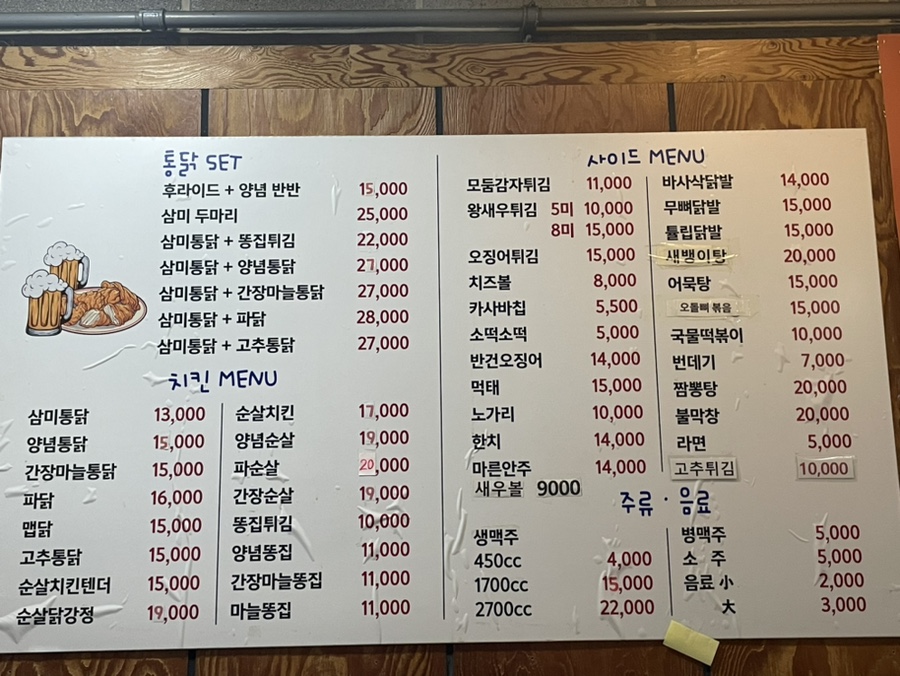 통닭 SET
후라이드 + 양념 반반 15,000
삼미 두마리 25,000
삼미통닭 + 똥집튀김 22,000
삼미통닭 + 양념통닭 27,000
삼미통닭 + 간장마늘통닭 27,000
삼미통닭 + 파닭 28,000
삼미통닭 + 고추통닭 27,000
치킨 MENU
삼미통닭 13,000
양념통닭 15,000
간장마늘통닭 15,000
파닭 16,000
맵닭 15,000
고추통닭 15,000
순살치킨텐더 15,000
순살닭강정 19,000
순살치킨 17,000
양념순살 19,000
파순살 20,000
간장순살 19,000
똥집튀김 10,000
양념똥집 11,000
간장마늘똥집 11,000
마늘똥집 11,000
사이드 MENU
모둠감자튀김 11,000
왕새우튀김 5미 10,000
8미 15,000
오징어튀김 15,000
치즈볼 8,000
카사바칩 5,500
소떡소떡 5,000
반건오징어 14,000
먹태 15,000
노가리 10,000
한치 14,000
마른안주 14,000
새우볼 9000
바사삭닭발 14,000
무뼈닭발 15,000
튤립닭발 15,000
새뱅이탕 20,000
어묵탕 15,000
오돌뼈 볶음 15,000
국물떡볶이 10,000
번데기 7,000
짬뽕탕 20,000
불막창 20,000
라면 5,000
고추튀김 10,000
주류 · 음료
생맥주
450cc 4,000
1700cc 15,000
2700cc 22,000
병맥주 5,000
소 주 5,000
음료 小 2,000
大 3,000